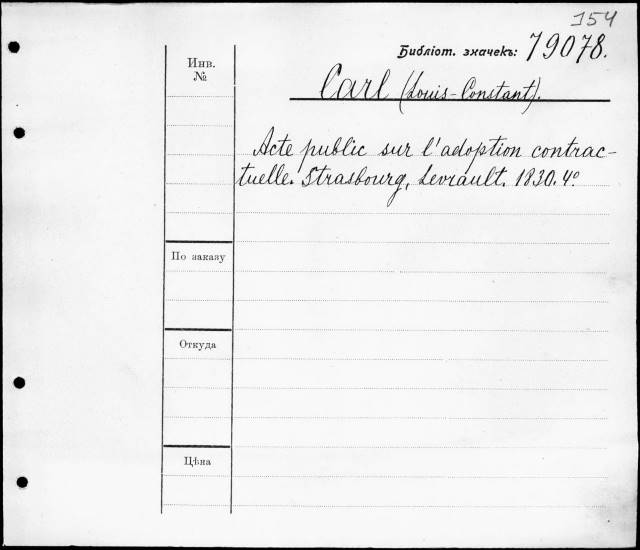 154
Библіот. значекъ: 79078.
Инв.
№
Carl (Louis-Constant).
Acte public sur l'adoption contrac-
tuelle. Strasbourg, Levrault. 1830. 4º
По заказу
Откуда
Цѣна